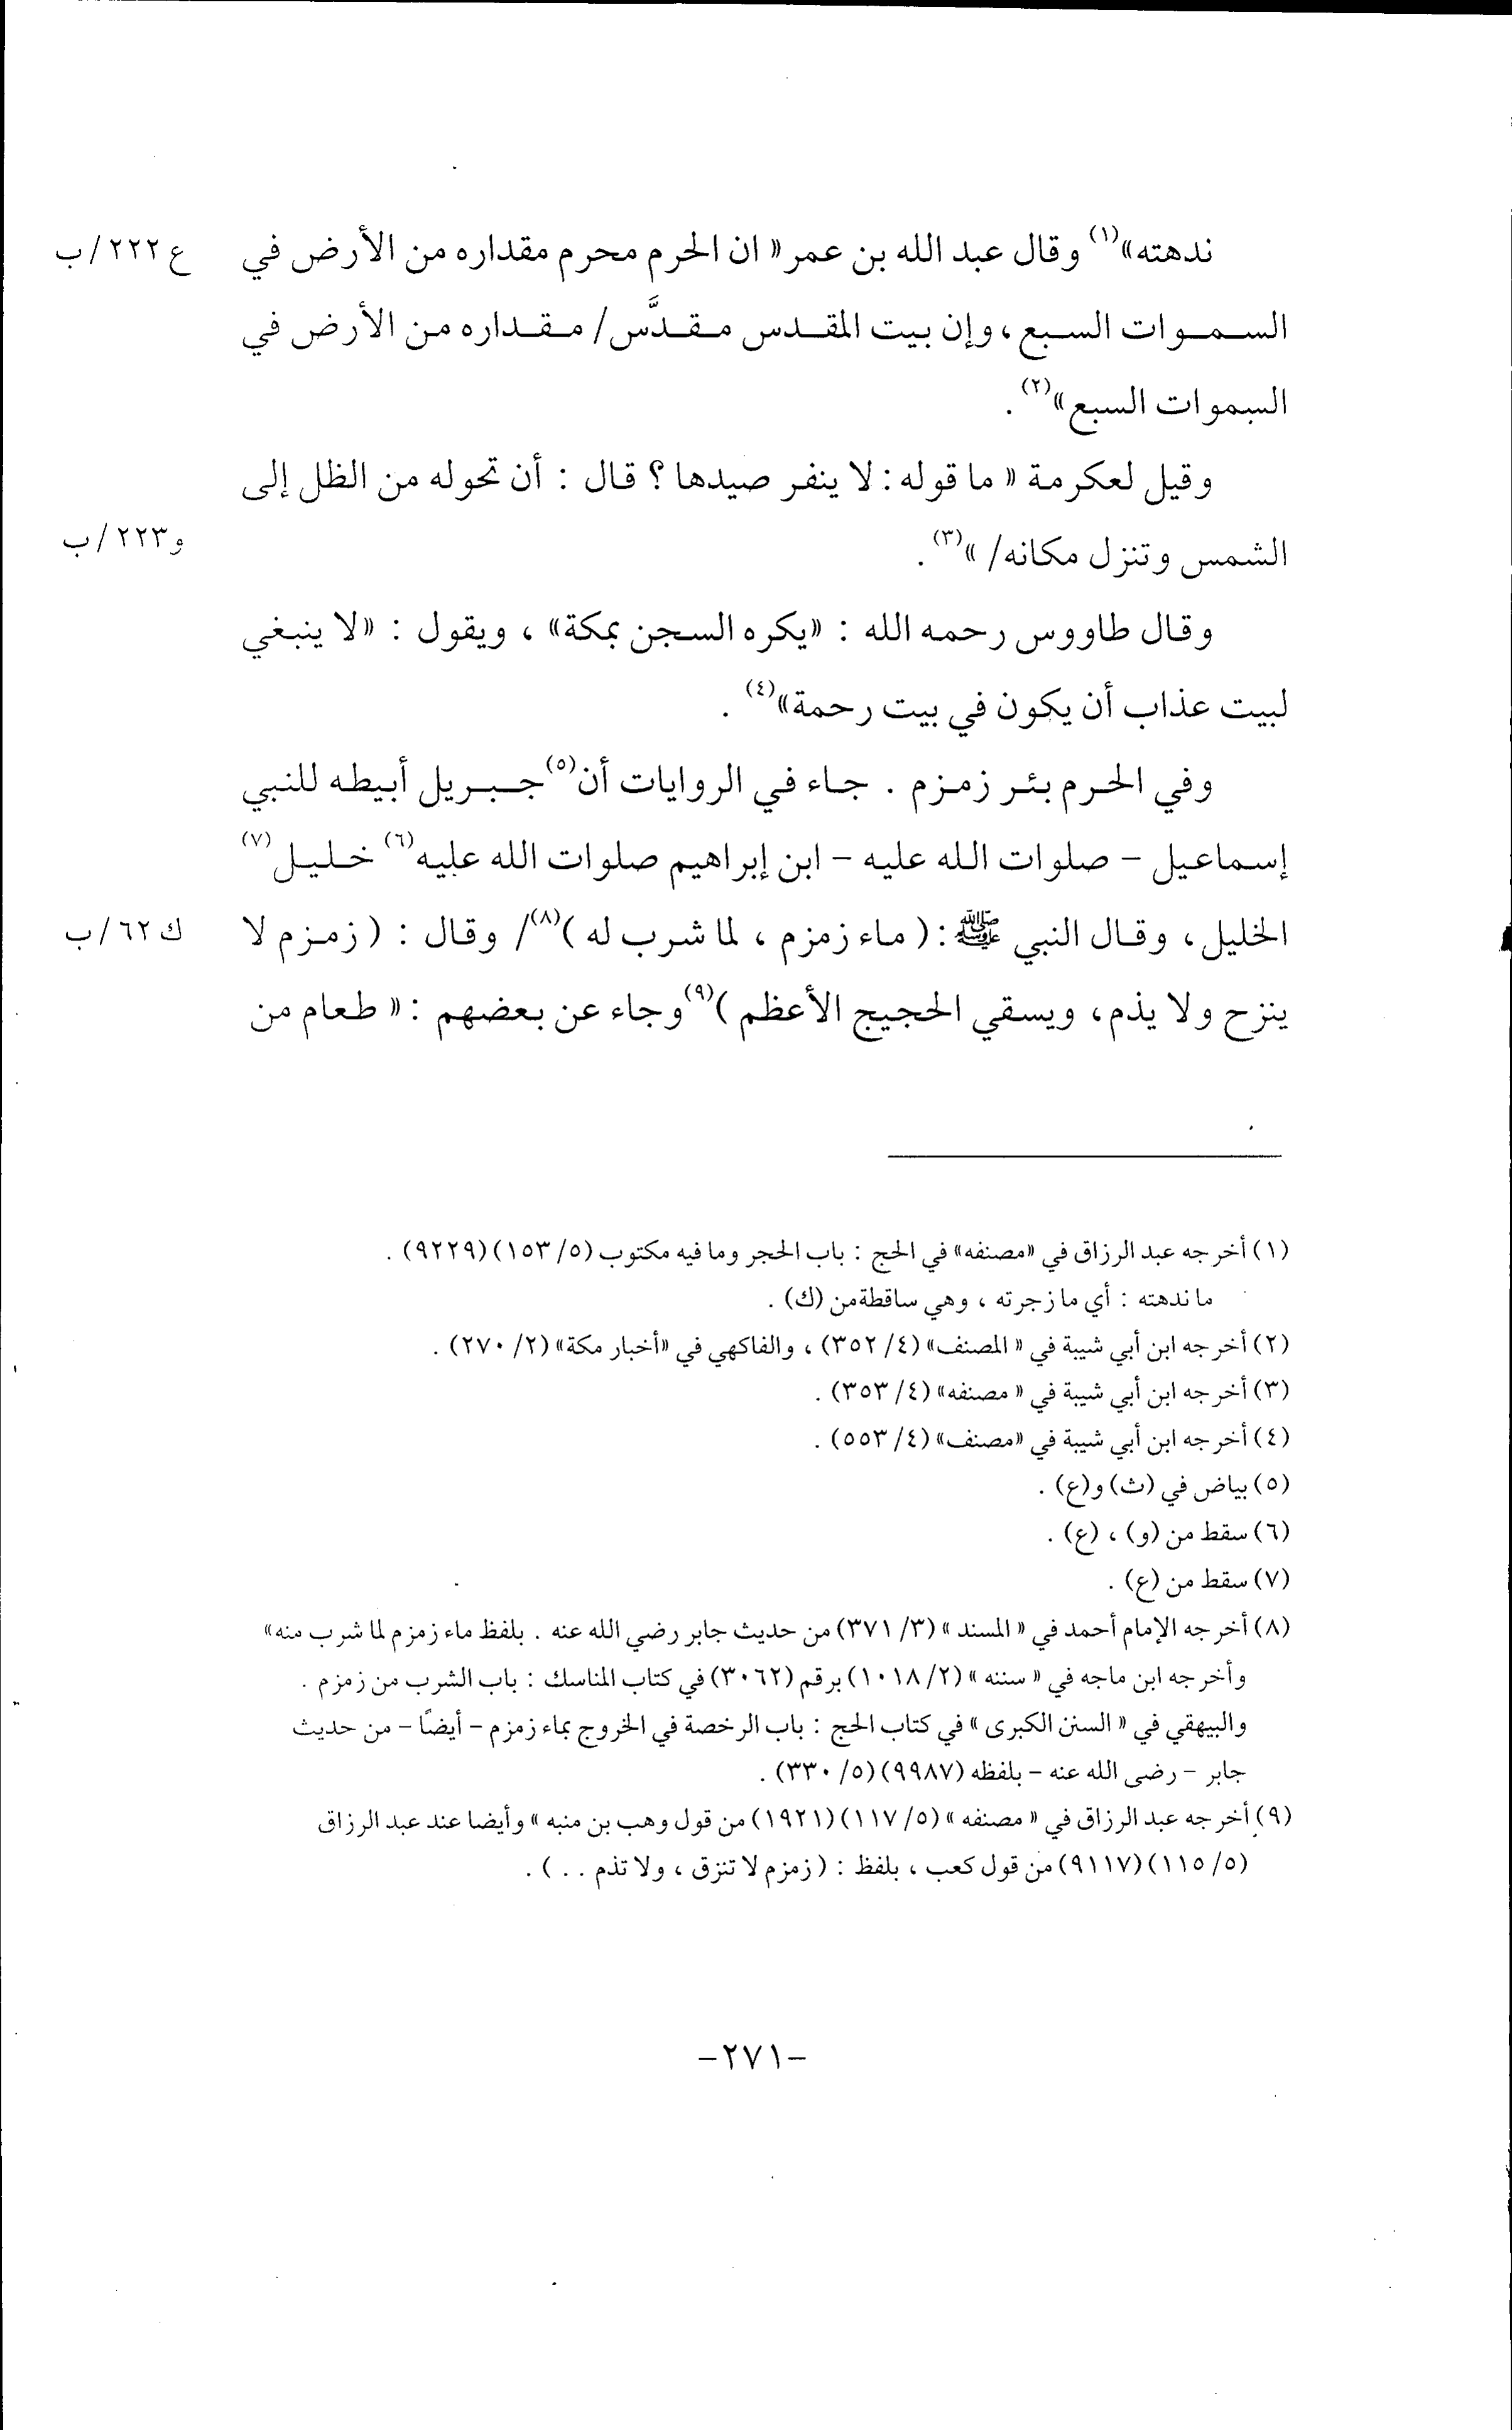 ندهته»(١) وقال عبد الله بن عمر « ان الحرم محرم مقداره من الأرض في
ع ٢٢٢/ب
السموات السبع ، وإن بيت المقدس مقدَّس/ مقداره من الأرض في
السموات السبع»(٢) .
وقيل لعكرمة « ما قوله : لا ينفر صيدها ؟ قال : أن تحوله من الظل إلى
الشمس وتنزل مكانه/ »(٣) .
و٢٢٣/ب
وقال طاووس رحمه الله : «يكره السجن بمكة» ، ويقول : «لا ينبغي
لبيت عذاب أن يكون في بيت رحمة»(٤) .
وفي الحرم بئر زمزم . جاء في الروايات أن(٥) جبريل أبيطه للنبي
إسماعيل – صلوات الله عليه – ابن إبراهيم صلوات الله عليه(٦) خليل(٧)
الخليل ، وقال النبي ﷺ : ( ماء زمزم ، لما شرب له )(٨)/ وقال : ( زمزم لا
ك ٦٢/ب
ينزح ولا يذم ، ويسقي الحجيج الأعظم )(٩) وجاء عن بعضهم : « طعام من
(١) أخرجه عبد الرزاق في «مصنفه» في الحج : باب الحجر وما فيه مكتوب (٥/ ١٥٣) (٩٢٢٩) .
ما ندهته : أي ما زجرته ، وهي ساقطة من (ك) .
(٢) أخرجه ابن أبي شيبة في « المصنف» (٤/ ٣٥٢) ، والفاكهي في «أخبار مكة» (٢/ ٢٧٠) .
(٣) أخرجه ابن أبي شيبة في « مصنفه» (٤/ ٣٥٣) .
(٤) أخرجه ابن أبي شيبة في «مصنف» (٤/ ٥٥٣) .
(٥) بياض في (ث) و(ع) .
(٦) سقط من (و) ، (ع) .
(٧) سقط من (ع) .
(٨) أخرجه الإمام أحمد في « المسند » (٣/ ٣٧١) من حديث جابر رضي الله عنه . بلفظ ماء زمزم لما شرب منه»
وأخرجه ابن ماجه في « سننه » (٢/ ١٠١٨) برقم (٣٠٦٢) في كتاب المناسك : باب الشرب من زمزم .
والبيهقي في « السنن الكبرى » في كتاب الحج : باب الرخصة في الخروج بماء زمزم – أيضًا – من حديث
جابر – رضى الله عنه – بلفظه (٩٩٨٧) (٥/ ٣٣٠) .
(٩) أخرجه عبد الرزاق في « مصنفه » (٥/ ١١٧) (١٩٢١) من قول وهب بن منبه » وأيضا عند عبد الرزاق
(٥/ ١١٥) (٩١١٧) من قول كعب ، بلفظ : ( زمزم لا تنزق ، ولا تذم . . ) .
–٢٧١–